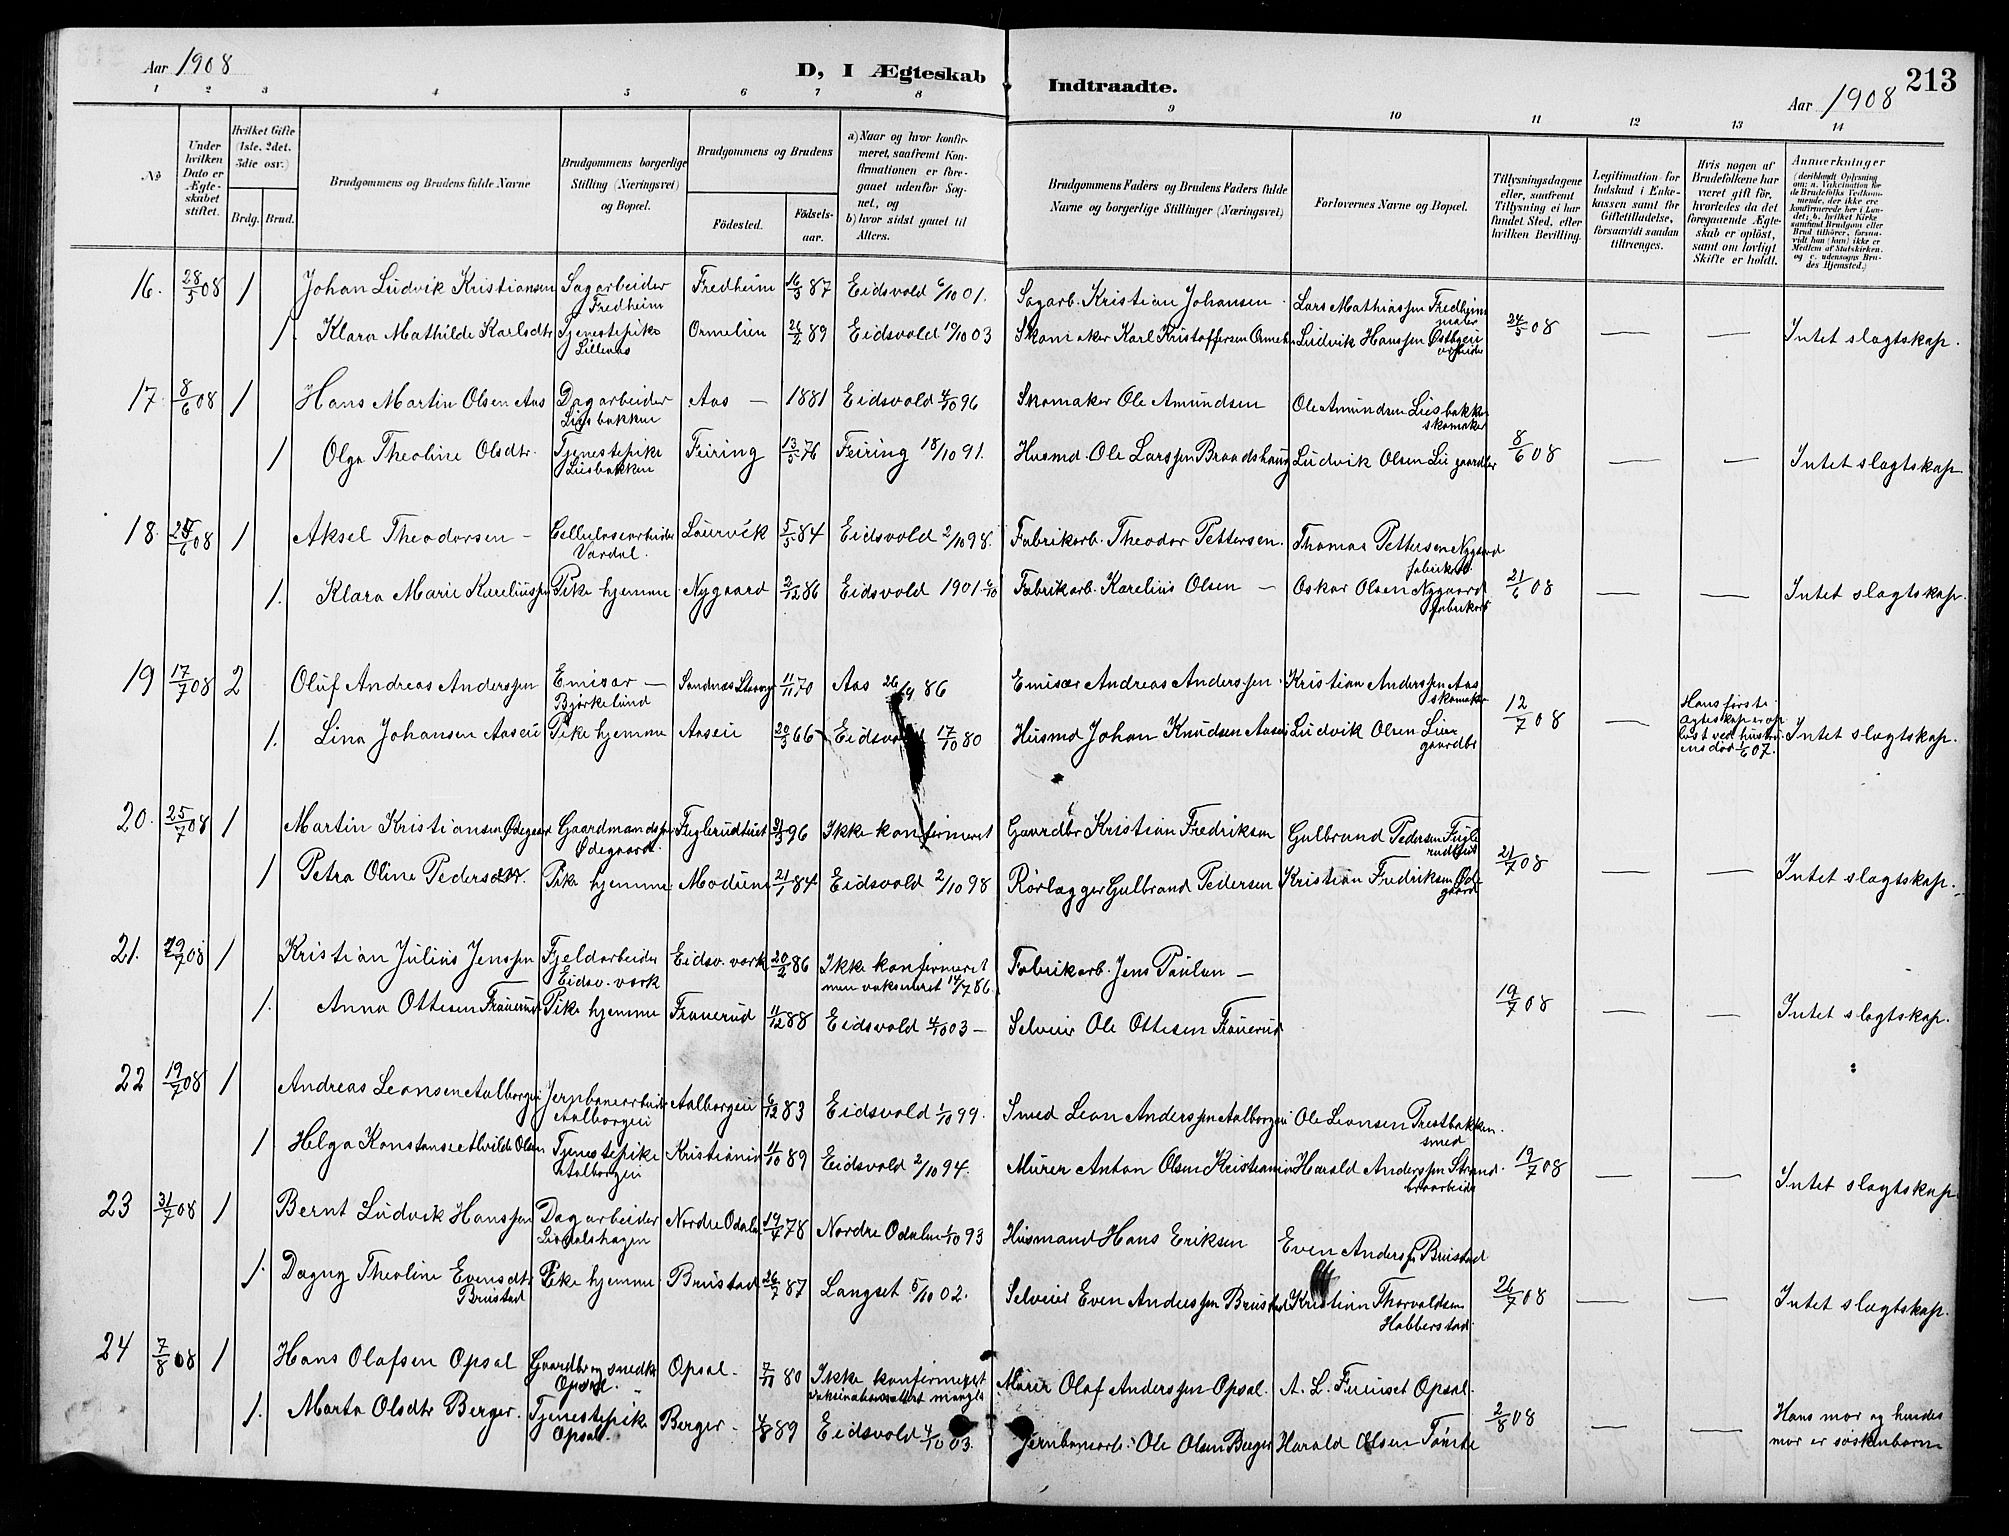 Aar 1908
D, I Ægteskab Indtraadte.
213
Aar 1908
1 2 3 4 5 6 7 8 9 10 11 12 13 14
№
Under hvilken Dato er Ægteskabet stiftet.
Hvilket Gifte (1ste, 2det, 3die osv.)
Brdg. Brud.
Brudgommens og Brudens fulde Navne
Brudgommens borgerlige Stilling (Næringsvei) og Bopæl.
Brudgommens og Brudens
Fødested.
Fødselsaar.
a) Naar og hvor konfirmeret, saafremt Konfirmationen er foregaaet udenfor Sognet, og
b) hvor sidst gaaet til Alters.
Brudgommens Faders og Brudens Faders fulde Navne og borgerlige Stillinger (Næringsvei)
Forlovernes Navne og Bopæl.
Tillysningsdagene eller, saafremt Tillysning ei har fundet Sted, efter hvilken Bevilling.
Legitimation for Indskud i Enkekassen samt for Giftetilladelse, forsaavidt saadan tiltrænges.
Hvis nogen af Brudefolkene har været gift før, hvorledes da det foregaaende Ægteskab er opløst, samt om lovligt Skifte er holdt.
Anmærkninger
(deriblandt Oplysning om: a. Vakcination for de Brudefolks Vedkommende, der ikke ere konfirmerede her i Landet; b. hvilket Kirkesamfund Brudgom eller Brud tilhører, forsaavidt han (hun) ikke er Medlem af Statskirken, og c. udensogns Brudes Hjemsted.)
16. 28/5 08 1 Johan Ludvik Kristiansen Sagarbeider Fredheim Fredheim 16/3 87 Eidsvold 6/10 01. Sagarb. Kristian Johansen Lars Mathiassen Fredheim maler
1. Klara Mathilde Karlsdtr Tjenestepike Lillenas Ormelien 21/2 89 Eidsvold 10/10 03 Skomaker Karl Kristoffersen Ormelien Ludvik Hanssen Østbyeie arbeider 24/5 08 — — Intet slagtskap.
17. 8/6 08 1 Hans Martin Olsen Aas Dagarbeider Liesbakken Aas — 1881 Eidsvold 4/10 96 Skomaker Ole Amundsen Ole Amundsen Liesbakke skomaker
1 Olga Theoline Olsdtr. Tjenestepike Liesbakken Feiring 13/5 76 Feiring 18/10 91. Husmd. Ole Larssen Braadshaug Ludvik Olsen Lie gaardbr 8/6 08 — — Intet slagtskap
18. /6 08 1 Aksel Theodorsen — Cellulosearbeider Vardal. Laurvik 5/5 84 Eidsvold 2/10 98. Fabrikarb. Theodor Pettersen. Thomas Pettersen Nygaard fabrikarb.
1. Klara Marie Kareliussen Pike hjemme Nygaard 2/12 86 Eidsvold 1901 6/10 Fabrikarb. Karelius Olsen — Oskar Olsen Nygaard fabrikarb 21/6 08 — — Intet slagtskap.
19 17/7 08 2 Oluf Andreas Anderssen Emisær — Bjørkelund Sandnæs Stavang 11/11 70 Aas 26/9 86 Emisær Andreas Anderssen. Kristian Anderssen Aas skomaker
1. Lina Johansen Aaseie Pike hjemme Aaseie 20/3 66 Eidsvold 17/10 80 Husmd Johan Knudsen Aaseie Ludvik Olsen Lie gaardbr 12/7 08 — Hans første ægteskap er opløst ved hustruens død 1/6 07. Intet slagtskap.
20. 25/7 08 1 Martin Kristiansen Ødegaard Gaardmandssøn Ødegaard. Fuglerudtuet 31/3 96 Ikke konfirmeret Gaardbr Kristian Fredriksen Gulbrand Pedersen Fuglerudtuet
1 Petra Oline Pedersdtr. Pike hjemme. Modum 21/1 84 Eidsvold 2/10 98 Rørlægger Gulbrand Pedersen Kristian Fredriksen Ødegaard 21/7 08 — — Intet slagtskap.
21. 19/7 08 1 Kristian Julius Jenssen Fjeldarbeider Eidsv. værk Eidsv. værk 20/2 86 Ikke konfirmeret men vaksineret 14/7 86. Fabrikarb. Jens Paulsen —
1. Anna Ottesen Frauerud Pike hjemme Frauerud 11/12 88 Eidsvold 4/10 03 — Selveier Ole Ottesen Frauerud 19/7 08 — — Intet slagtskap.
22 19/7 08 1 Andreas Leonsen Aalborgeie Jernbanearbeider Aalborgeie Aalborgeie 6/12 83 Eidsvold 1/10 99. Smed Leon Anderssen Aalborgeie Ole Leonsen Prestbakken. smed
1 Helga Konstanse Alvilde Olsen Tjenestepike Aalborgeie Kristiania 11/10 89 Eidsvold 2/10 94. Murer Anton Olsen Kristiania Harald Anderssen Strand. 19/7 08 — — Intet slagtskap
23 31/7 08 1 Bernt Ludvik Hanssen Dagarbeider Nordre Odalen 19/7 78 Nordre Odalen 1/10 93 Husmand Hans Eriksen Even Anderss. Brustad
1. Dagny Theoline Evensdtr Brustad Pike hjemme. Brustad 26/7 87 Langset 5/10 02. Selveier Even Anderssen Brustad Kristian Thorvaldsen Habberstad. 26/7 08 — — Intet slagtskap.
24 7/8 08 1 Hans Olafsen Opsal Gaardbr og snedk Opsal. Opsal. 7/11 80 Ikke konfirmeret vaksinationsattest mangler Murer Olaf Anderssen Opsal. A. L. Furuset Opsal.
1. Marta Olsdtr Berger. Tjenestepike Opsal. Berger. 4/8 89 Eidsvold 4/10 03. Jernbanearb. Ole Olsen Berger Harald Olsen Tømte 2/8 08 — — Hans mor og hendes mor er søskenbarn